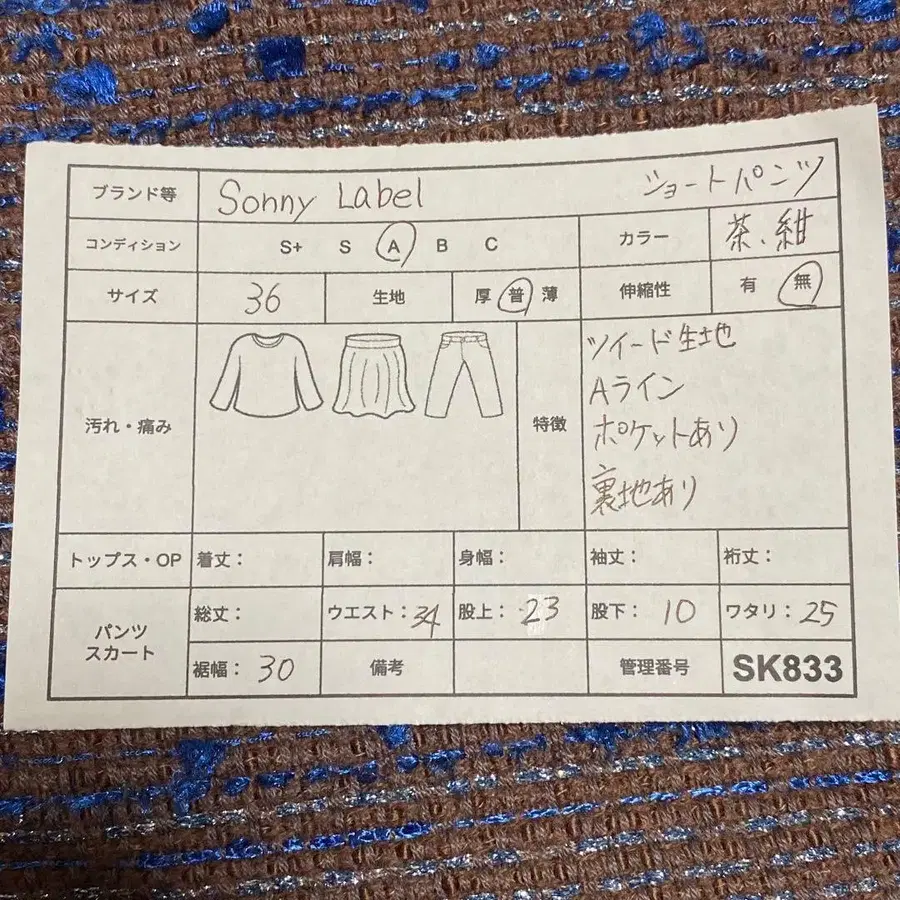 ブランド等 Sonny Label ショートパンツ
コンディション S+ S A B C カラー 茘、紺
サイズ 36 生地 厚 普 薄 伸縮性 有 無
汚れ・痛み 特徴 ツイード生地
Aライン
ポケットあり
裏地あり
トップス・OP 着丈： 肩幅： 身幅： 袖丈： 裄丈：
パンツ スカート 総丈： ウエスト：34 股上：23 股下：10 ワタリ：25
裾幅：30 備考 管理番号 SK833